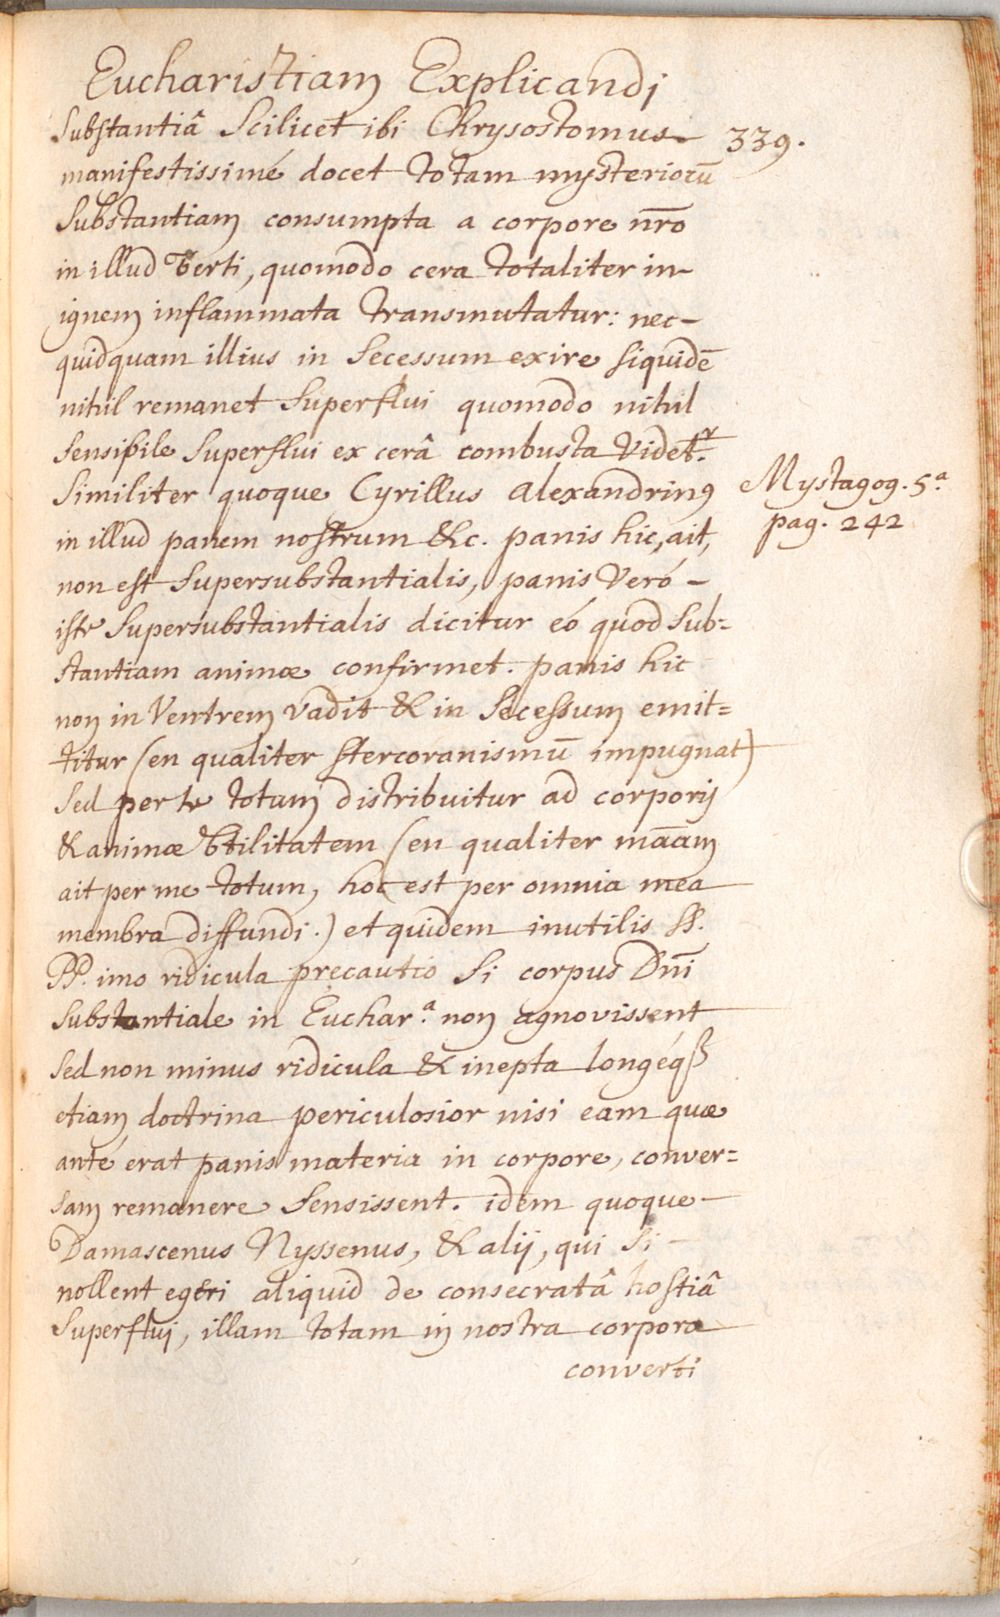 Eucharistiam Explicandi
339.
Substantiâ Scilicet ibi Chrysostomus
manifestissimé docet totam mysteriorū
Substantiam consumpta a corpore nr̄o
in illud Verti, quomodo cera totaliter in-
ignem inflammata transmutatur: nec-
quidquam illius in Secessum exire siquidē
nihil remanet Superflui quomodo nihil
Sensibile Superflui ex cerâ combusta Videt.ʳ
Similiter quoque Cyrillus Alexandrinꝯ
Mystagog. 5ª
pag. 242
in illud panem nostrum &c. panis hic, ait,
non est Supersubstantialis, panis Veró -
iste Supersubstantialis dicitur eó quod Sub=
stantiam animæ confirmet. panis hic
non in Ventrem vadit & in Secessum emit=
titur (en qualiter stercoranismū impugnat)
Sed per te totum distribuitur ad corporis
& animæ Vtilitatem (en qualiter
ait per me totum, hoc est per omnia mea
membra diffundi.) et quidem inutilis SS.
PP. imo ridicula precautio Si corpus Dn̄i
Substantiale in Euchar.ª non agnovissent
Sed non minus ridicula & inepta longéqꝫ
etiam doctrina periculosior nisi eam quæ
anté erat panis materia in corpore, conver=
sam remanere Sensissent. idem quoque -
Damascenus Nyssenus, & alij, qui Si -
nollent egeri aliquid de consecratâ hostiâ
Superflui, illam totam in nostra corpora
converti